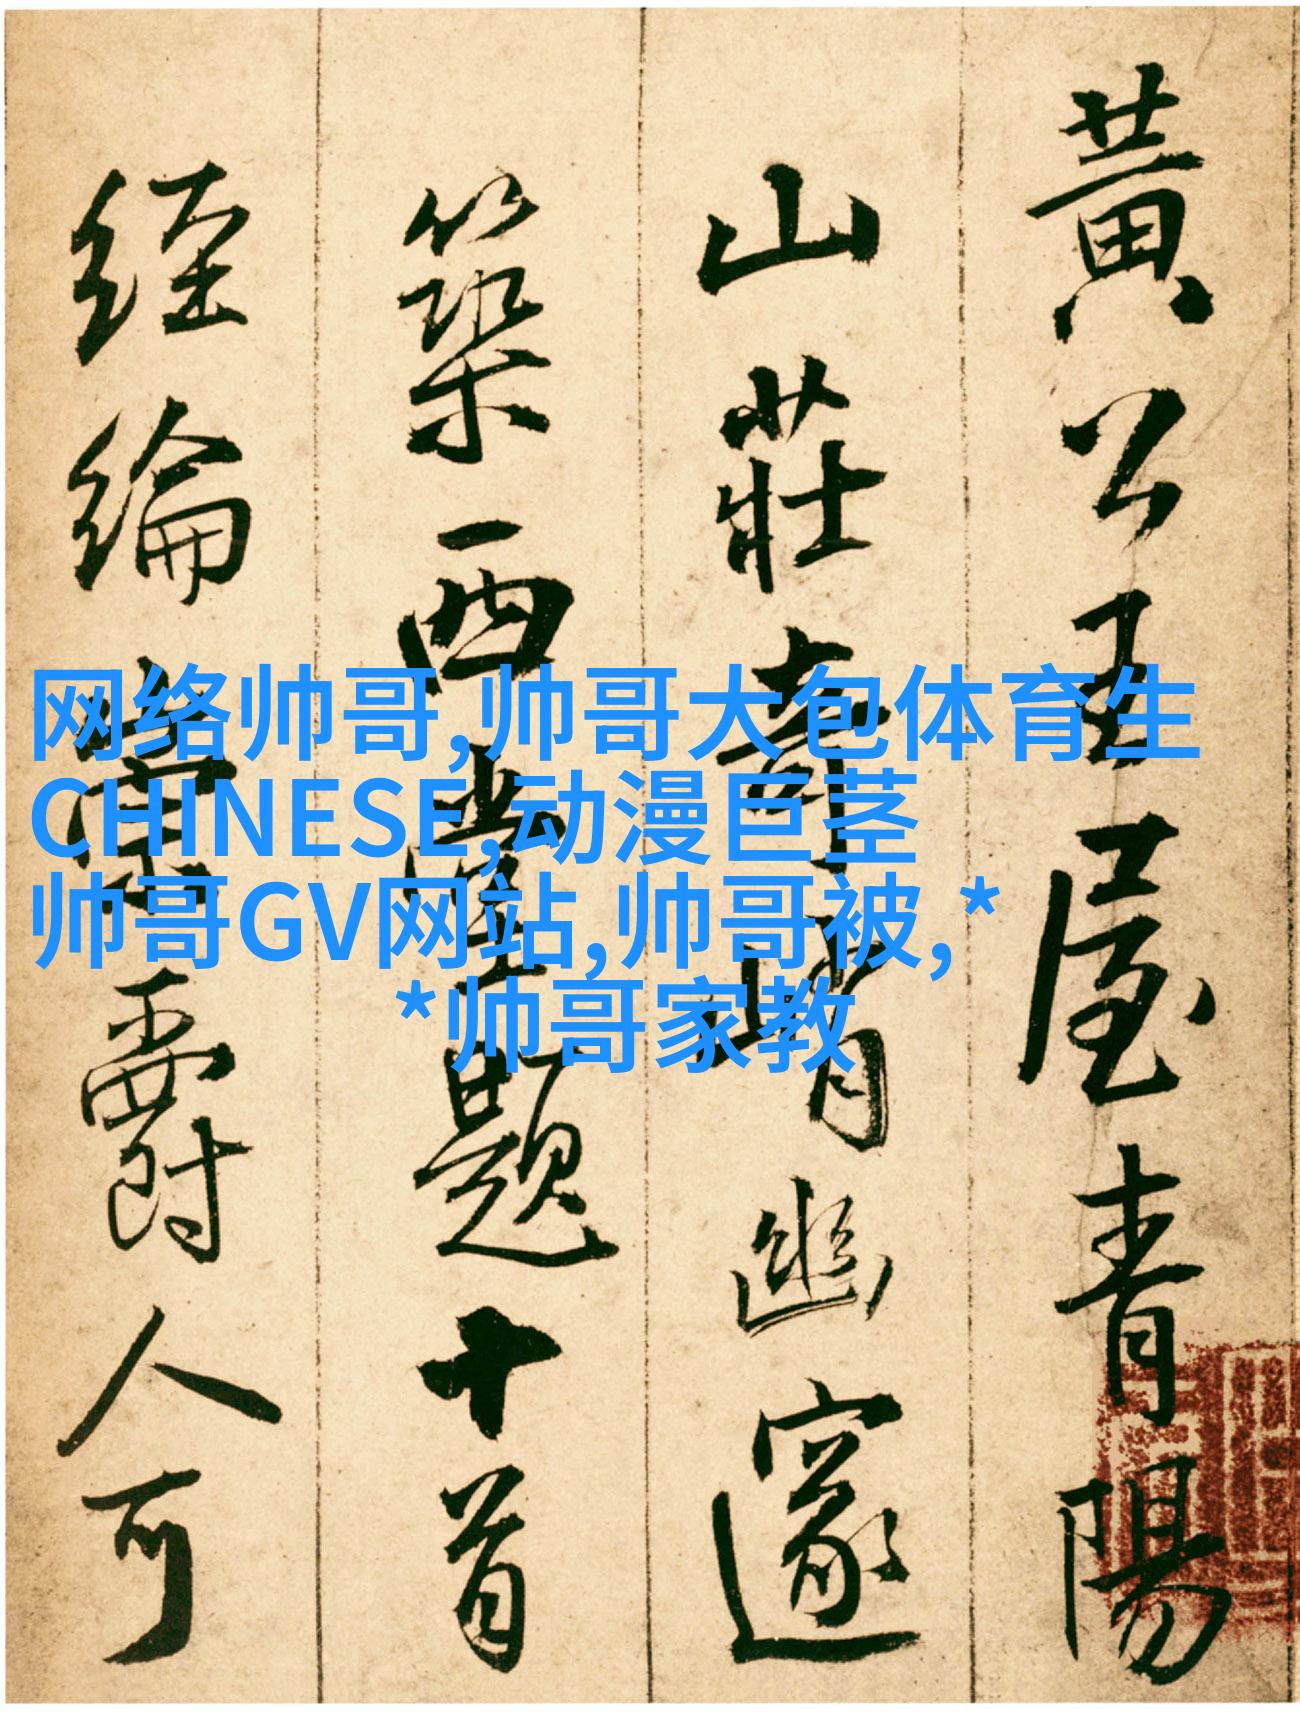 黃公王屋青陽
山莊奇峭幽邃
築西題十首
經綸爵人可
网络帅哥,帅哥大包体育生
CHINESE,动漫巨茎
帅哥GV网站,帅哥被,*
*帅哥家教